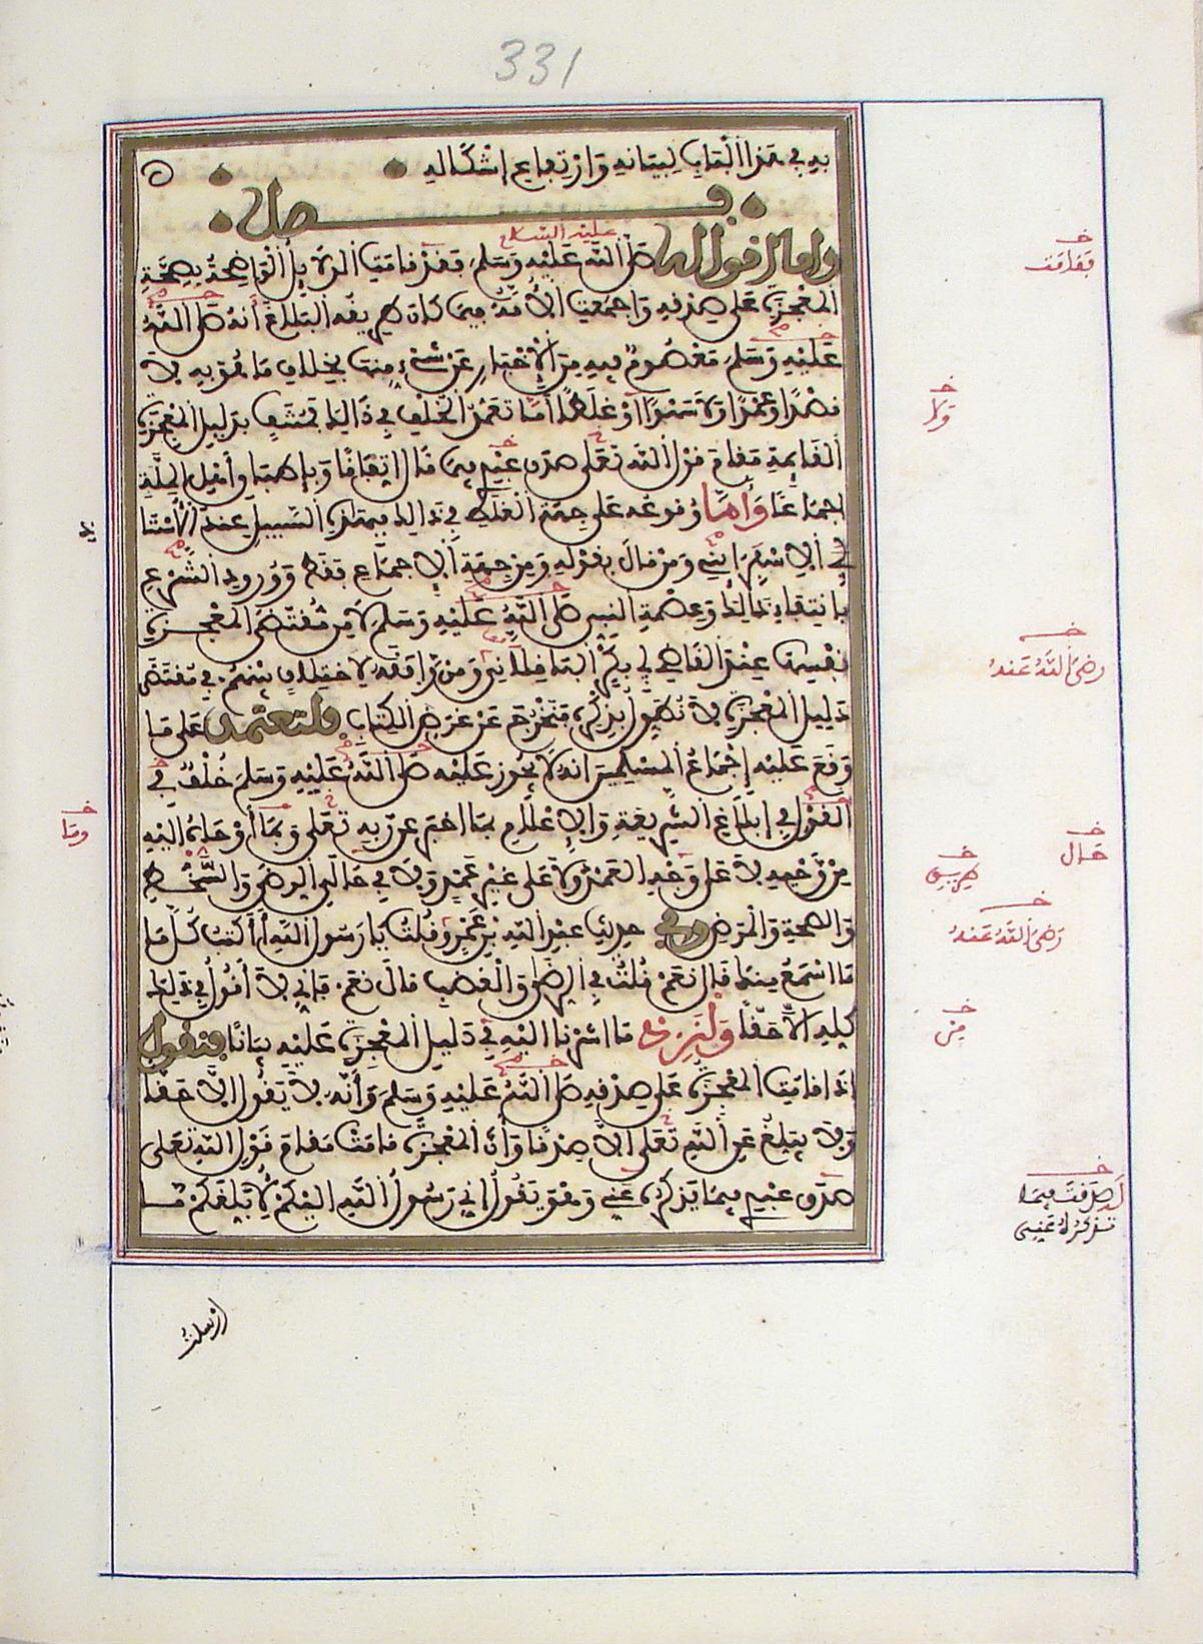 331
بيه في هذا الباب لبيانه وارتفاع اشكاله
فصل
واما اقواله صلى الله عليه وسلم فقد قامت الدلايل الواضحة بصحة
عليه السلام
المعجزة على صدقه واجمعت الامة فيما كان طريقه البلاغ أنه صلى الله
عليه وسلم معصوم فيه من الاخبار عن شيء منها بخلاف ما هو به لا
قصدا او عمدا ولا سهوا او غلطا أما تعمد الخلف في ذالك فمنتف بدليل المعجزة
القايمة مقام قول الله تعلى صدق عبدي فيما قال اتفاقا وبإطباق أهل الملة
اجماعا وأما وقوعه على جهة الغلط في ذالك فبهذه السبيل عند الأستاذ
أبي الاسفرايني ومن قال بقوله ومن جهة الاجماع فقط وورود الشرع
بانتفاء ذالك وعصمة النبي صلى الله عليه وسلم لا من مقتضى المعجزة
نفسها عند القاضي أبي بكر الباقلاني ومن وافقه لاختلاف بينهم في مقتضى
دليل المعجزة لا نطول بذكره فنخرج عن غرض الكتاب فلنعتمد على ما
وقع عليه إجماع المسلمين انه لا يجوز عليه صلى الله عليه وسلم خلف في
القول في إبلاغ الشريعة والاعلام بما اخبر عن ربه تعلى وبما أوحاه اليه
من وحيه لا على وجه العمد ولا على غير عمد ولا في حالي الرضى والسخط
والصحة والمرض وفي حديث عبد الله بن عمرو قلت يا رسول الله أأكتب كل ما
ما اسمع منك قال نعم قلت في الرضى والغضب قال نعم فاني لا أقول في ذلك
كله الا حقا ولنزد ما اشرنا اليه في دليل المعجزة عليه بيانا فنقول
اذا قامت المعجزة على صدقه صلى الله عليه وسلم وأنه لا يقول الا حقا
ولا يبلغ عن الله تعلى الا صدقا وأن المعجزة قامت مقام قول الله تعلى
صدق عبدي فيما يذكره عني وهو يقول اني رسول الله اليكم لأبلغكم ما
ارسلت
خ
فقامت
خ
ولا
خ
رضي الله عنه
خ
وما
خ
حال
خ
رضي الله عنه
خ
من
خ
صدقت فيما
تذكره عني